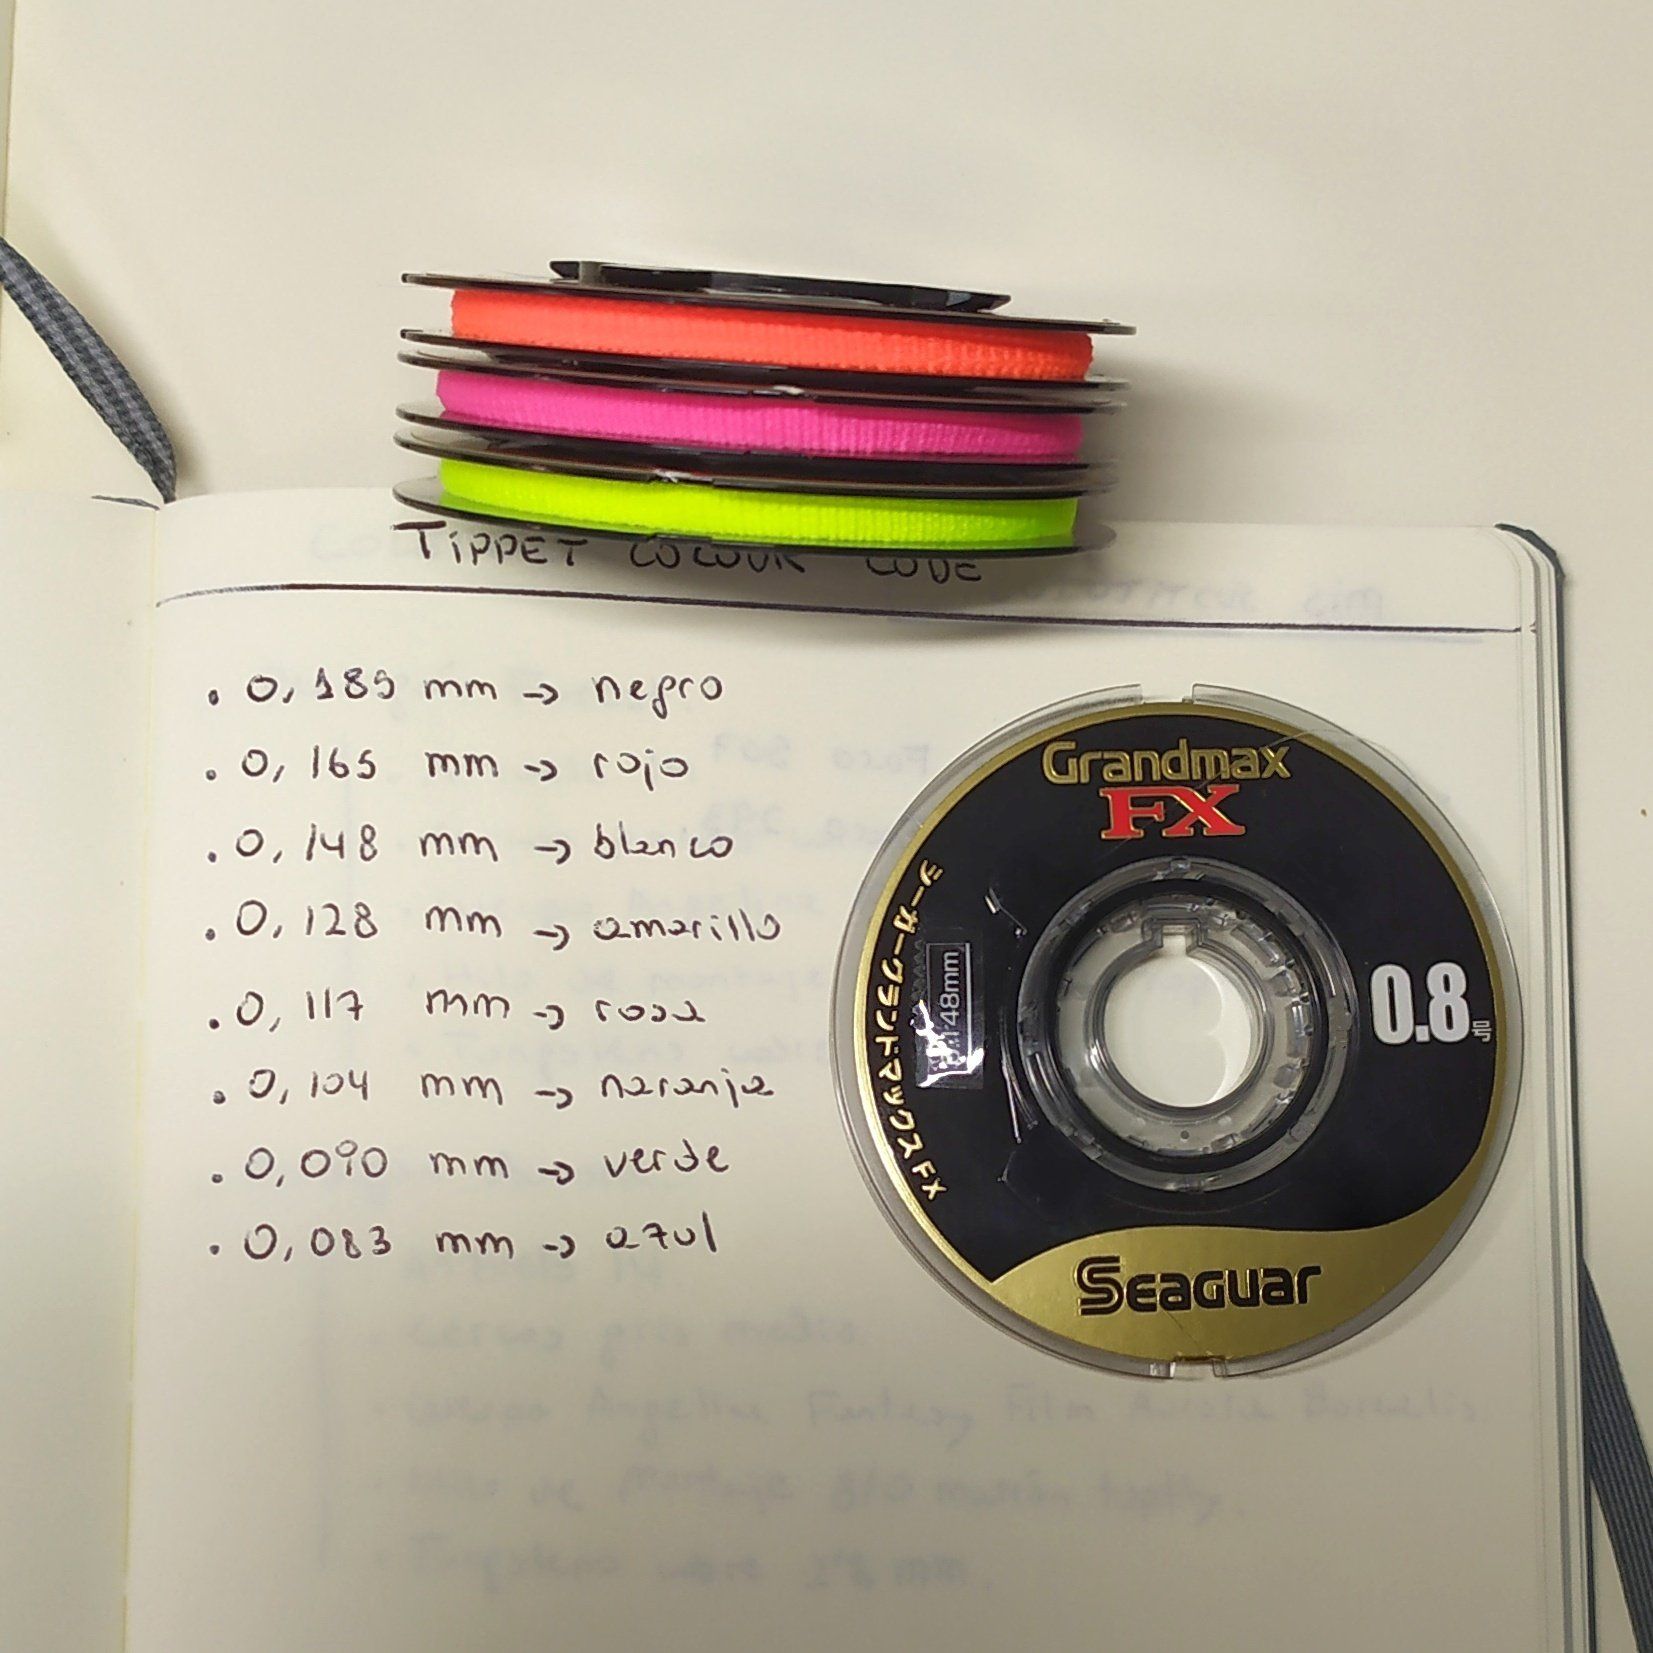 TIPPET COLOUR CODE
. 0,185 mm → negro
. 0,165 mm → rojo
. 0,148 mm → blanco
. 0,128 mm → amarillo
. 0,117 mm → rosa
. 0,104 mm → naranja
. 0,090 mm → verde
. 0,083 mm → azul
Grandmax
FX
シーガーグランドマックスFX
0.148mm
0.8号
Seaguar